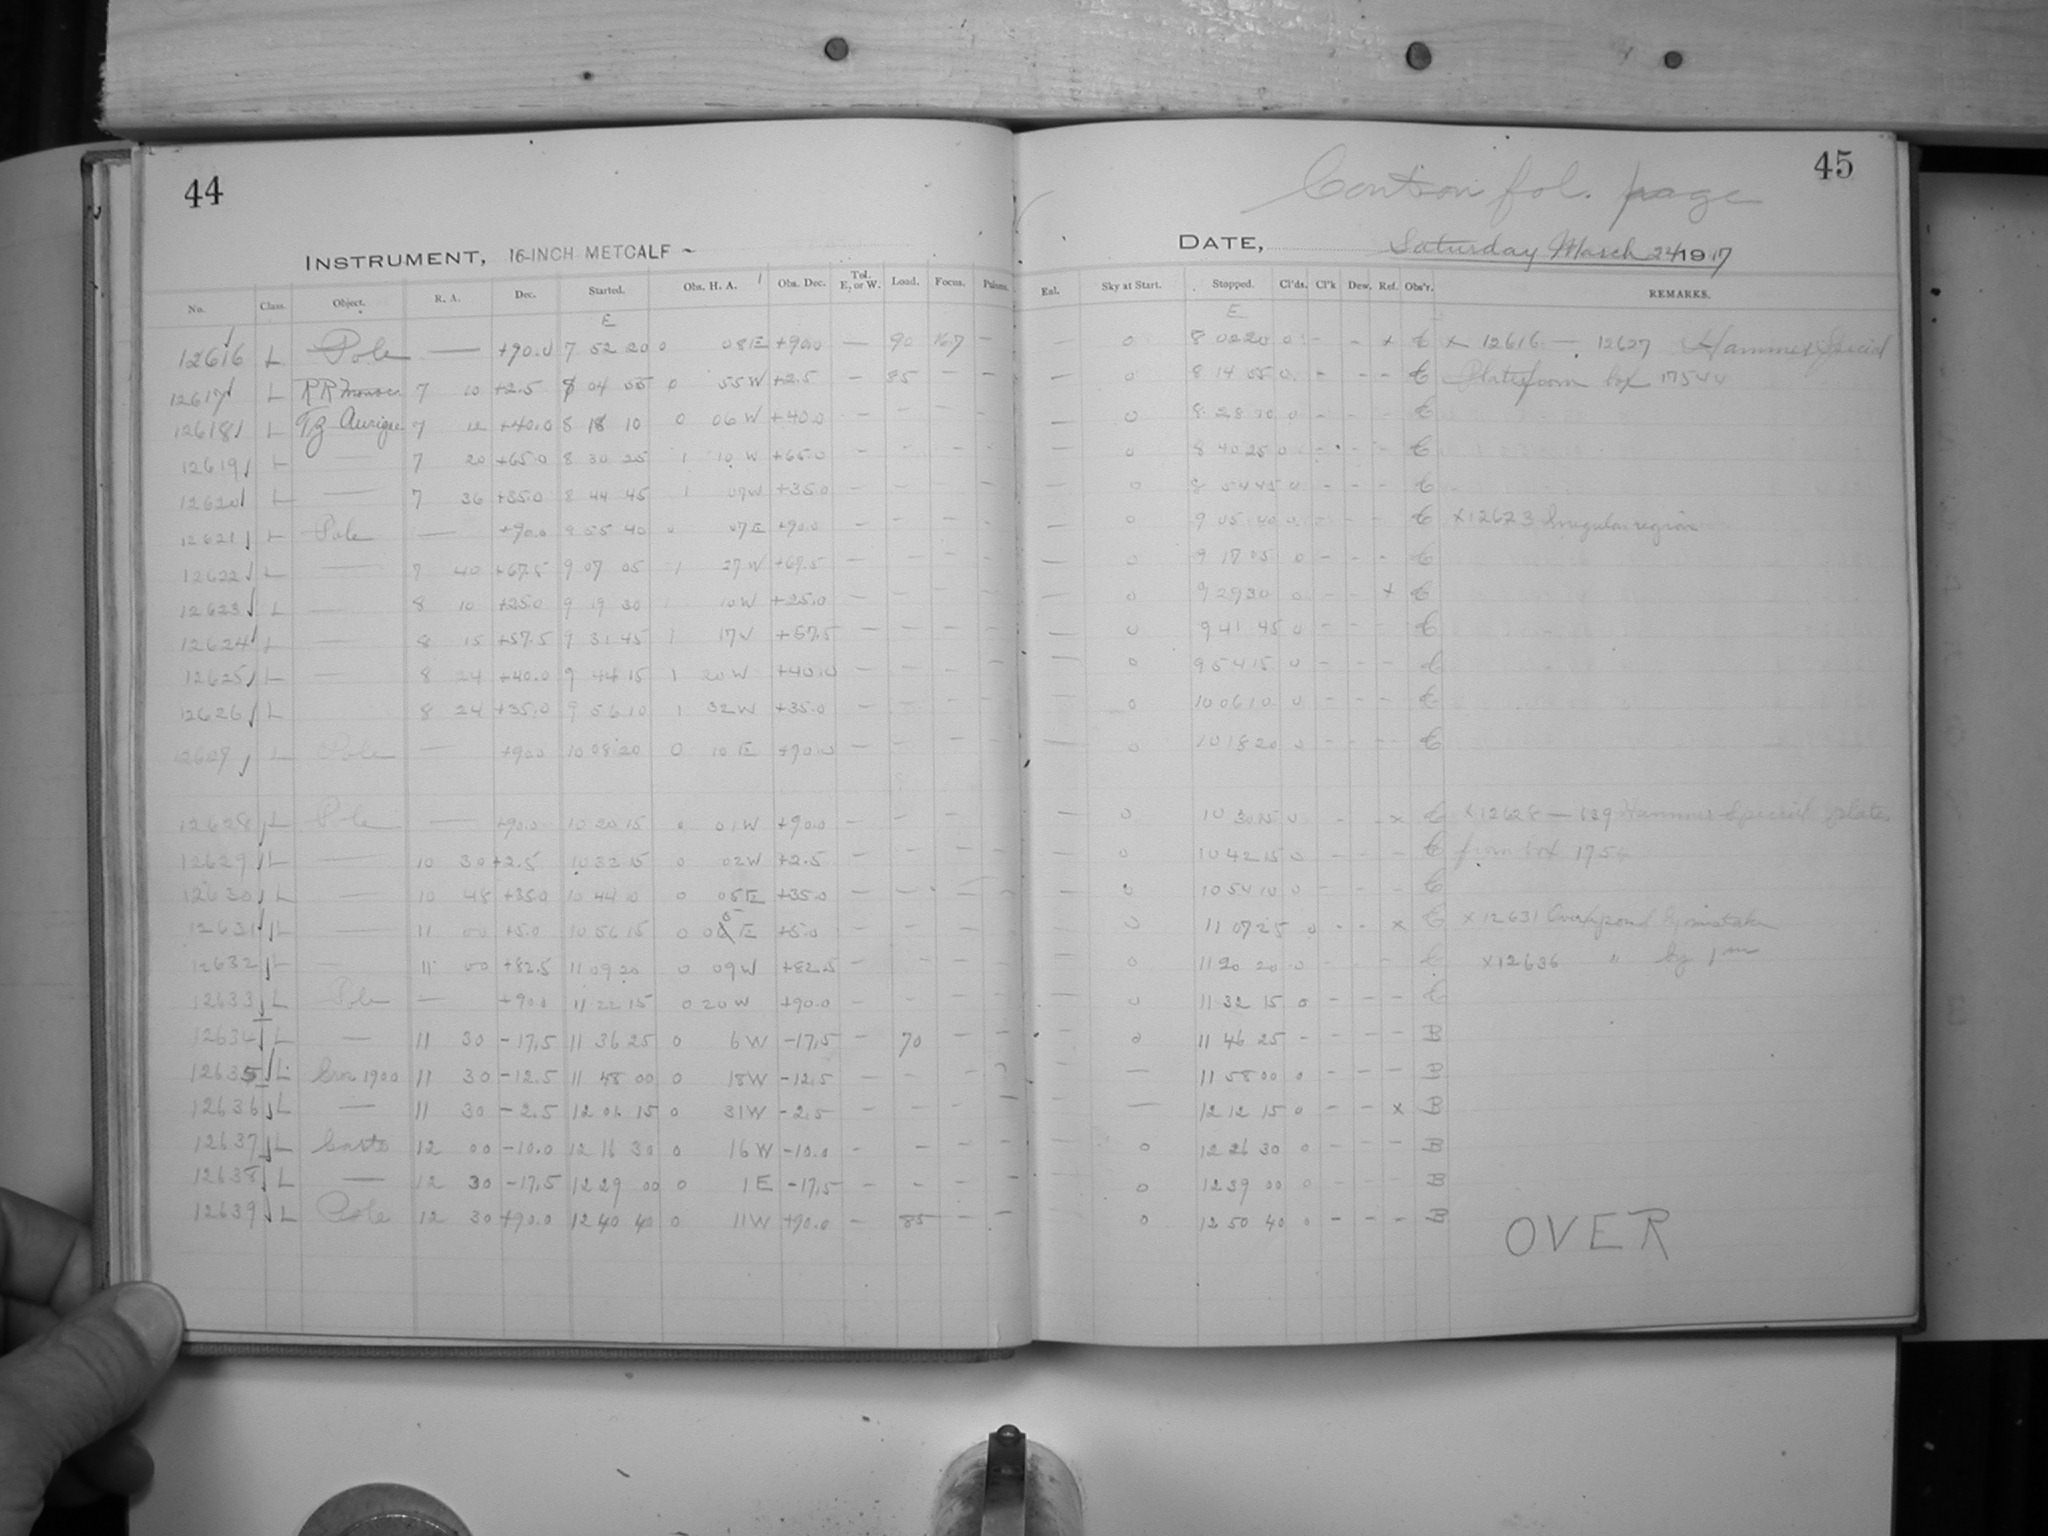 44
INSTRUMENT, 16-INCH METCALF ~
No. Class. Object. R. A. Dec. Started. Obs. H. A. Obs. Dec. Tel. E. or W. Load. Focus.
E
12616 L Pole — +90.0 7 52 20 0 08 E +90.0 — 90 16.7 —
12617 L RR Monoc 7 10 +2.5 8 04 05 0 55 W +2.5 — 85
12618 L Aurigae 7 12 +40.0 8 18 10 0 06 W +40.0 — — —
12619 L — 7 20 +65.0 8 30 25 1 10 W +65.0 — — — —
12620 L — 7 36 +35.0 8 44 45 1 07 W +35.0 — — — —
12621 L Pole — +90.0 8 55 40 0 07 E +90.0 — — — —
12622 L — 7 40 +67.5 9 07 05 1 27 W +67.5 — — — —
12623 L — 8 10 +25.0 9 19 30 1 10 W +25.0 — — — —
12624 L — 8 15 +57.5 9 31 45 1 17 W +57.5 — — — —
12625 L — 8 24 +40.0 9 44 15 1 20 W +40.0 — — — —
12626 L 8 24 +35.0 9 56 10 1 32 W +35.0 — — — —
L Pole — +90.0 10 08 20 0 10 E +90.0 — — — —
12628 L Pole — +90.0 10 20 15 0 01 W +90.0 — — —
12629 L — 10 30 +2.5 10 32 15 0 02 W +2.5 — — — —
12630 L — 10 48 +35.0 10 44 10 0 05 E +35.0 — — — —
12631 L — 11 00 +5.0 10 56 15 0 05 E +5.0 — — — —
12632 L — 11 00 +82.5 11 09 20 0 09 W +82.5 — — — —
12633 L Pole — +90.0 11 22 15 0 20 W +90.0 — — — —
12634 L — 11 30 -17.5 11 36 25 0 6 W -17.5 — 70 — —
12635 L 1900 11 30 -12.5 11 48 00 0 18 W -12.5 — — —
12636 L — 11 30 -2.5 12 01 15 0 31 W -2.5 — — — —
12637 L 12 00 -10.0 12 16 30 0 16 W -10.0 — — — —
12638 L — 12 30 -17.5 12 29 00 0 1 E -17.5 — — — —
12639 L Pole 12 30 +90.0 12 40 40 0 11 W +90.0 — 85 — —
45
fol. page
DATE, Saturday March 24 1917
Sky at Start. Stopped. Cl'ds. Cl'k Dew. Ref. Obs'r. REMARKS.
E
— 0 8 02 20 0 - - x C x 12616 — 12627 Hammer Special
— 0 8 14 05 0 - - - C Plates from box 17544
— 0 8 28 10 0 - - - C
— 0 8 40 25 0 - - - C
— 0 8 54 45 0 - - - C
— 0 9 05 40 0 - - - C x 12623 Irregular region
— 0 9 17 05 0 - - - C
— 0 9 29 30 0 - - x C
— 0 9 41 45 0 - - - C
— 0 9 54 15 0 - - - C
— 0 10 06 10 0 - - - C
— 0 10 18 20 0 - - - C
— 0 10 30 15 0 - - x C x 12628 — 139 Hammer Special plates
— 0 10 42 15 0 - - - C from box
— 0 10 54 10 0 - - - C
— 0 11 07 25 0 - - x C x 12631 by mistake
— 0 11 20 20 0 - - - C x 12636 " by 1m
— 0 11 32 15 0 - - - C
— 0 11 46 25 - - - - B
— — 11 58 00 0 - - - B
— — 12 12 15 0 - - x B
0 12 26 30 0 - - - B
0 12 39 00 0 - - - B
0 12 50 40 0 - - - B
OVER